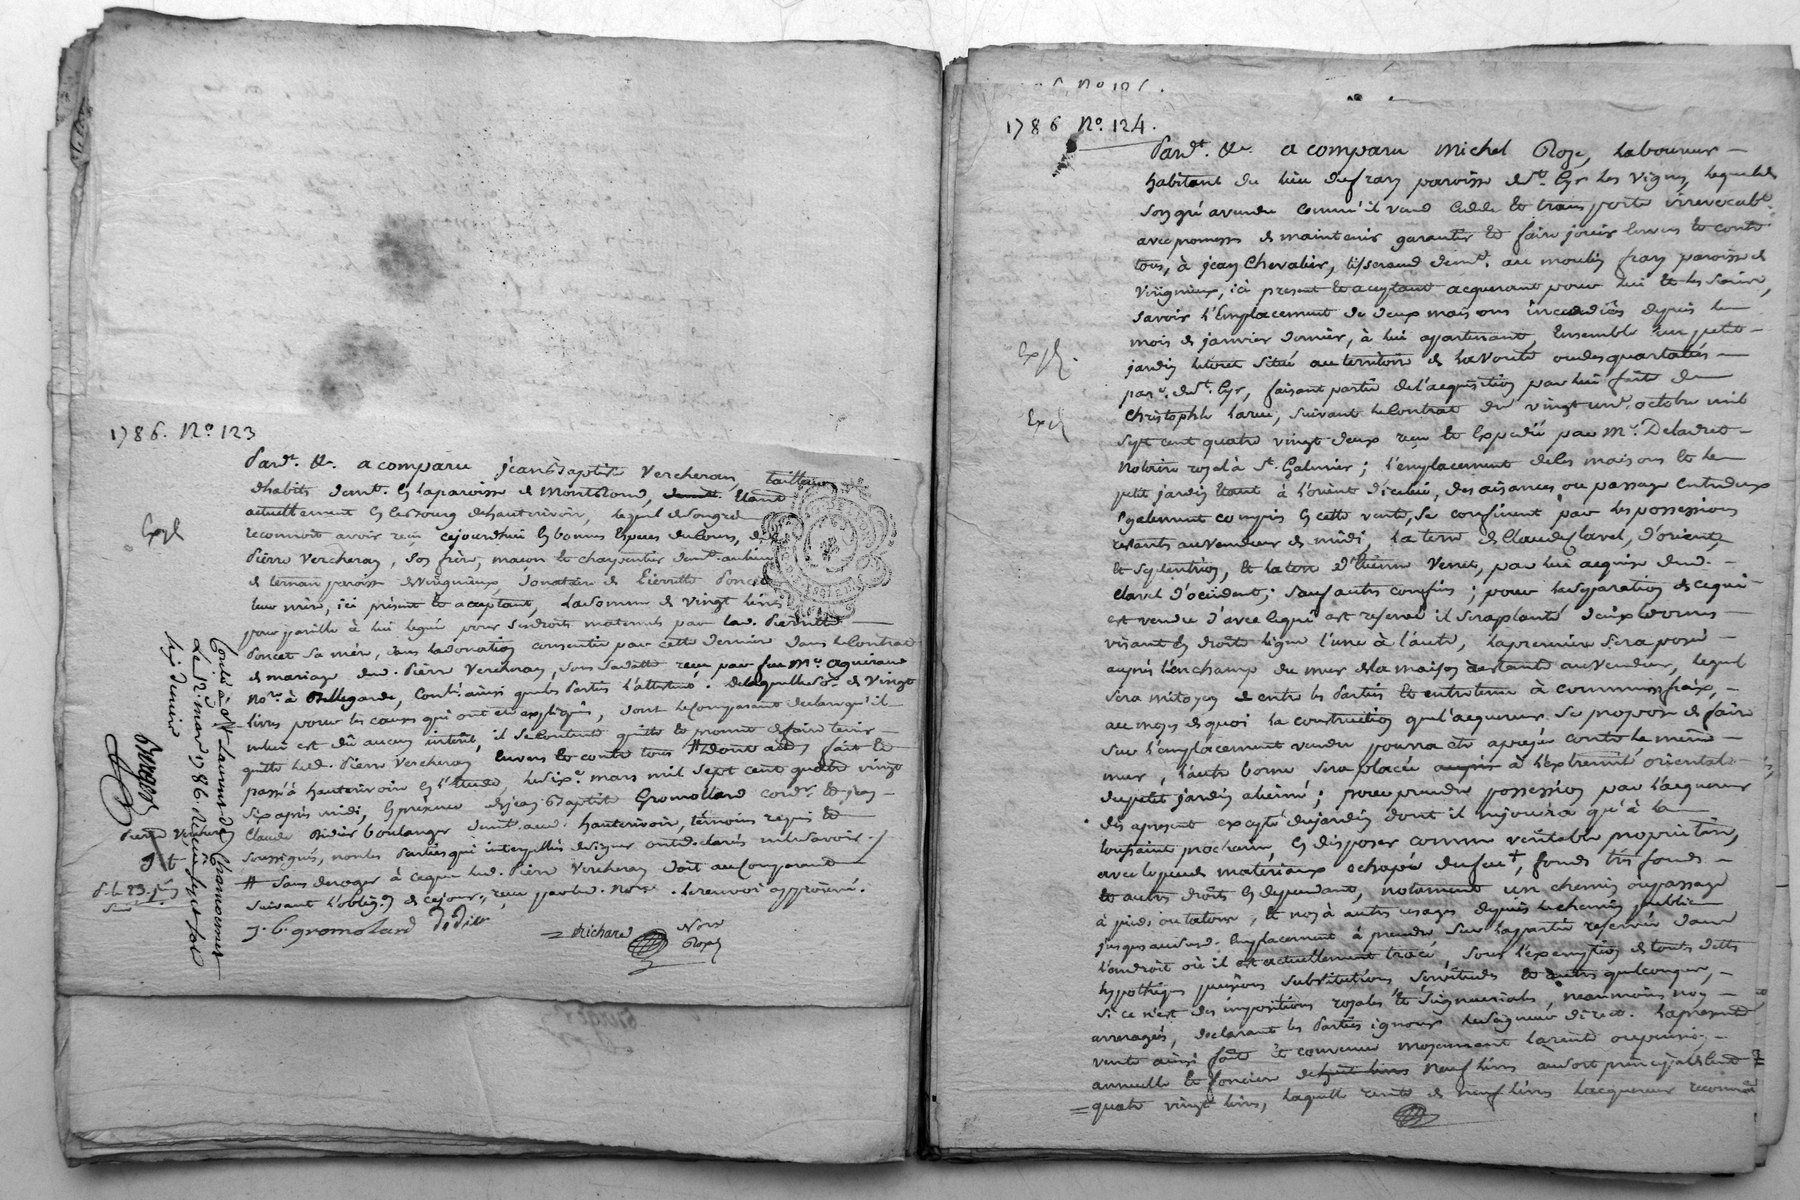 1786. No 123
Pardt. &c. a comparu jean Baptiste Vercheran, tailleur
d'habits demt. en la paroisse de Montbloud, étant
actuellement en ce bourg de hauterivoir, lequel de son gré
reconnoit avoir reçu cejourd'hui en bonnes Espéces de Cours, de
Pierre Vercheran, son frère, maçon et charpentier demt. au lieu
de ternan paroisse de virignieux, donataire de Pierrette Poncet
leur mère, ici présent et aceptant, la somme de vingt livres
pour pareille à lui leguée pour ses droits maternels par lad. Pierrette
Poncet sa mère, dans la donation consentie par cette derniere dans le Contrat
de mariage dud. Pierre Vercheran, sous sa datte reçu par feu Me. Aguiraud
Nore. à Bellegarde, Controllé ainsi que les Parties l'attestent. de laquelle so. de vingt
livres pour les causes qui ont été expliquées, dont le comparant declare qu'il
ne lui est dû aucun intérêt, il se Contente quitte et promet de faire tenir
quitte led. Pierre Vercheran Envers et contre tous # Dont acte fait et
passé à hauterivoir en l'Etude, le six. mars mil sept cent quatre vingt
six après midi, En présence de jean Baptiste Gromollard cordr. et jean
Claude Didier boulanger demt. aud. hauterivoir, témoins requis et
soussignés, non les Parties qui interpellées de signer ont déclaré ne le savoir./
# sans deroger à ce que led. Pierre Vercheran doit au Comparant
suivant l'oblign. de cejour, reçue par led. Nore. le renvoi approuvé.
J. B. gromolard Didier
Richard Nore
Royal
Expé
Conllé à St. Laurent de Chamousset
Le 12 mars 1786. Reçu sept sols
six deniers
Pierre Vercheran
1786 No. 124.
Pardt. &c. a comparu Michel Roze, laboureur
habitant du lieu de fray paroisse de St. Cyr les Vignes, lequel de
son gré a vendu comme il vend Cedde et transporte irrevocabt.
avec promesse de maintenir garantir et faire jouir Envers et contre
tous, à jean Chevalier, tisserand demt. au moulin fray paroisse de
Virignieux, ici present et aceptant acquerant pour lui et les siens,
savoir l'Emplacement de deux maisons incendiées depuis le
mois de janvier dernier, à lui appartenant, Ensemble un petit
jardin le tout situé au territoire de la Voute ou des quartaliés
pare. de St. Cyr, faisant partie de l'acquisition par lui faite de
Christophle larue, suivant le Contrat du vingt un. octobre mil
sept cent quatre vingt deux reçu et Expedié par Me. Deladret
Notaire royal à St. Galmier; l'emplacement desdes maisons et le
petit jardin étant à l'orient d'icelui, des aisances ou passage Entredeux
Egalement compris en cette vente, se confinent par les possessions
restants au vendeur de midi, la terre de Claude Clavel, d'orient
et septentrion, et la terre d'Etienne Veret, par lui acquise dud.
Clavel d'occident; sauf autres confins; pour la separation de ce qui
est vendu d'avec ce qui est reservé il sera planté deux bornes
visant en droite ligne l'une à l'autre, la premiere sera posée
auprès l'enchamp du mur de la maison restante au Vendeur, lequel
sera mitoyen d'entre les Parties et entretenu à communs fraix,
au moyen de quoi la construction que l'acquereur se propose de faire
sur l'emplacement vendu pourra être apuyée contre le même
mur, l'autre borne sera placée à l'extremité orientale
du petit jardin aliené; pour prendre possession par l'acquereur
dès apresent excepté du jardin dont il ne jouira qu'à la
toussaint prochaine, en disposer comme veritable proprietaire,
avec le peu de materiaux echapés du feu, fonds très fonds
et autres droits en dependant, notament un chemin ou passage
à pieds ou talons, et non à autres usages depuis le chemin public
jusques aud. Emplacement à prendre sur la partie reservée dans
l'endroit où il est actuellement tracé, sous l'exemption de touts dettes
hypothèques pensions substitutions servitudes et autres quelconques,
si ce n'est des impositions royales et seigneuriales, neanmoins non
arreragés, declarant les Parties ignorer le Seigneur direct. La presente
vente ainsi faite et convenue moyennant la rente ou pension
annuelle et foncière de neuf livres au sort principal de Cent
quatre vingt livres, laquelle rente de neuf livres lacquereur reconnoit
Expé.
Expé